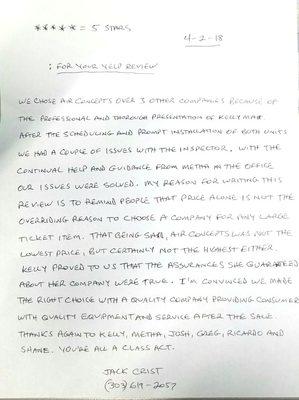 ***** = 5 STARS
4-2-18
: FOR YOUR YELP REVIEW
WE CHOSE AIR CONCEPTS OVER 3 OTHER COMPANIES BECAUSE OF
THE PROFESSIONAL AND THOROUGH PRESENTATION OF KELLY MAR.
AFTER THE SCHEDULING AND PROMPT INSTALLATION OF BOTH UNITS
WE HAD A COUPLE OF ISSUES WITH THE INSPECTOR, WITH THE
CONTINUAL HELP AND GUIDANCE FROM METHA IN THE OFFICE
OUR ISSUES WERE SOLVED. MY REASON FOR WRITING THIS
REVIEW IS TO REMIND PEOPLE THAT PRICE ALONE IS NOT THE
OVERRIDING REASON TO CHOOSE A COMPANY FOR ANY LARGE
TICKET ITEM. THAT BEING SAID, AIR CONCEPTS WAS NOT THE
LOWEST PRICE, BUT CERTAINLY NOT THE HIGHEST EITHER.
KELLY PROVED TO US THAT THE ASSURANCES SHE GUARANTEED
ABOUT HER COMPANY WERE TRUE. I'M CONVINCED WE MADE
THE RIGHT CHOICE WITH A QUALITY COMPANY PROVIDING CONSUMER
WITH QUALITY EQUIPMENT AND SERVICE AFTER THE SALE.
THANKS AGAIN TO KELLY, METHA, JOSH, GREG, RICARDO AND
SHANE. YOU'RE ALL A CLASS ACT.
JACK CRIST
(303) 619-2057